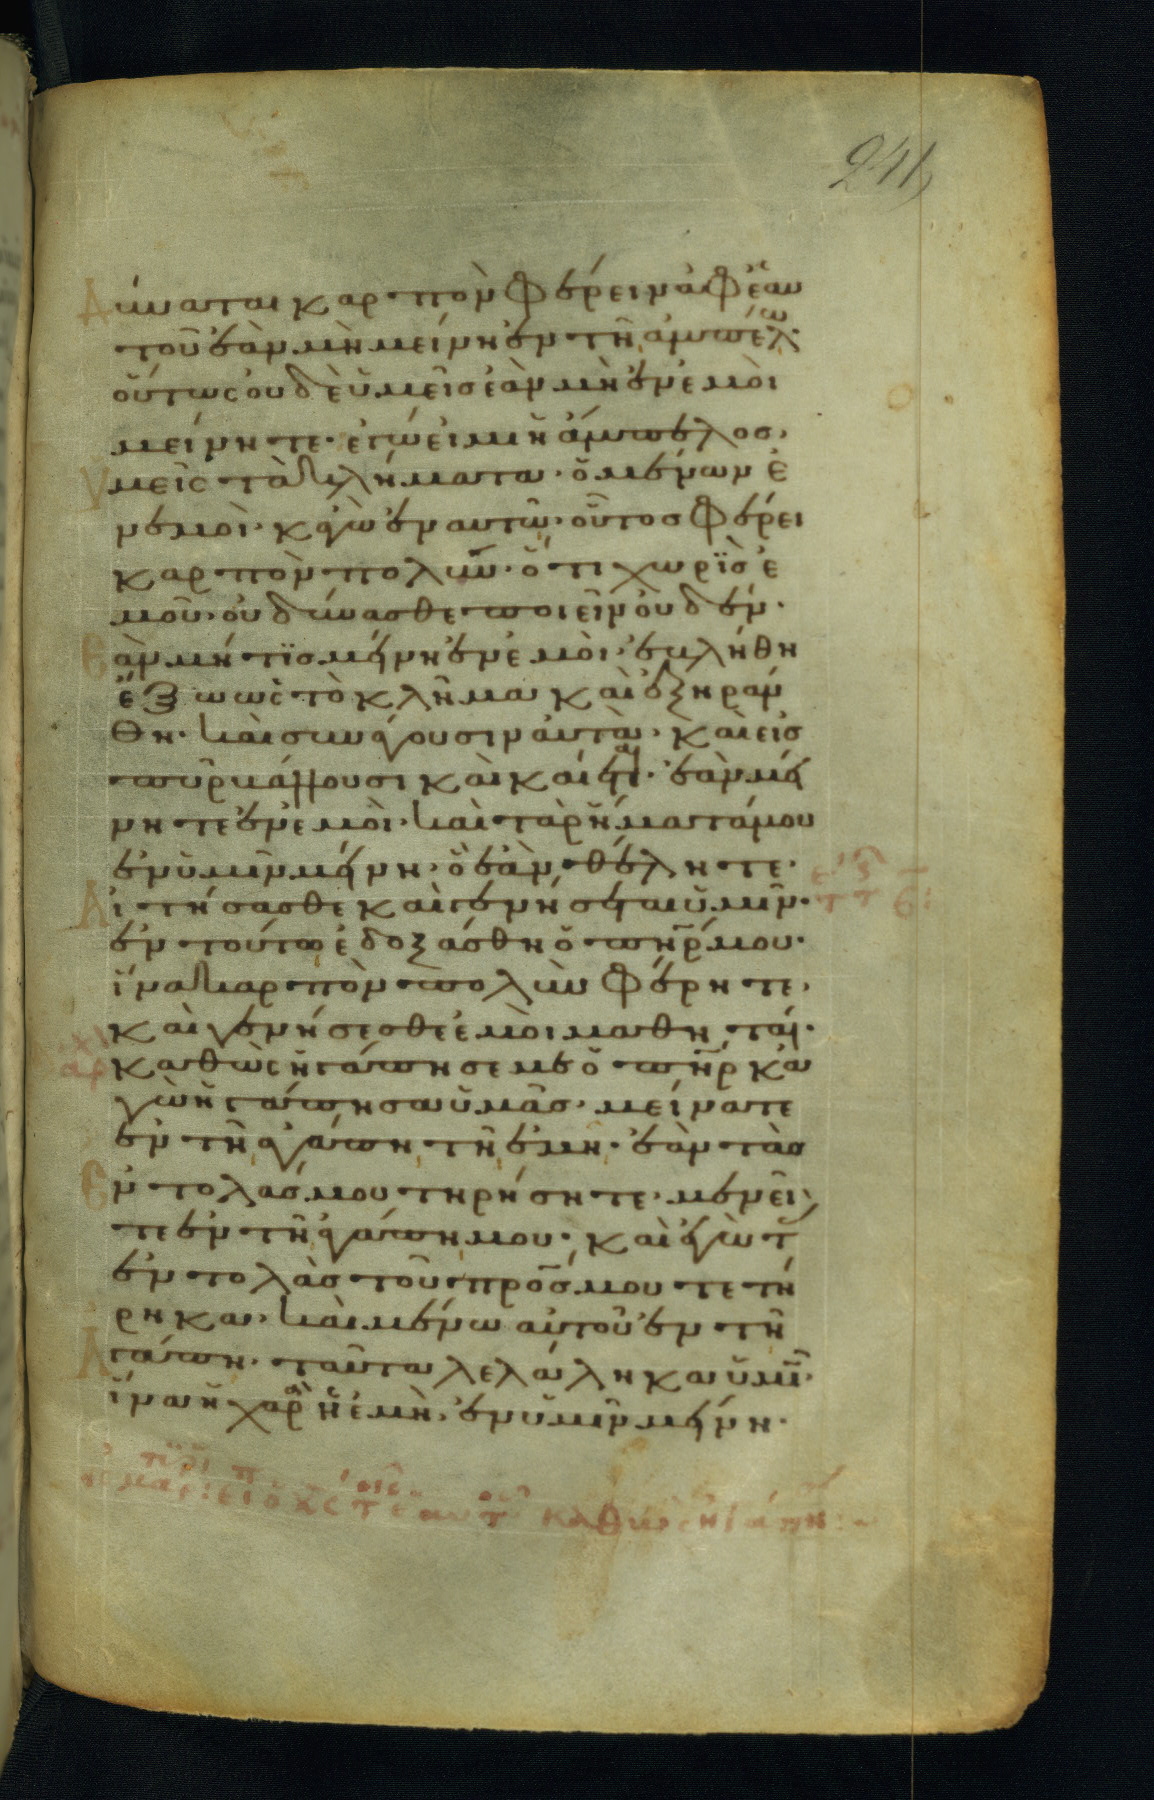 241
Δύναται καρπὸν φέρειν ἀφ' ἑαυ
τοῦ ἐὰν μὴ μείνη ἐν τῆ ἀμπέλω·
οὕτως οὐδὲ ὑμεῖς ἐὰν μὴ ἐν ἐμοὶ
μείνητε· ἐγώ εἰμι ἡ ἄμπελος·
Υμεῖς τὰ κλήματα· ὁ μένων ἐ
ν ἐμοὶ· κἀγὼ ἐν αυτῶ· οὗτος φέρει
καρπὸν πολὺν· ὅτι χωρὶς ἐ
μοῦ· οὐ δύνασθε ποιεῖν οὐδέν·
Εὰν μή τις μείνη ἐν ἐμοὶ· ἐβλήθη
ἔξω ὡς τὸ κλῆμα καὶ ἐξηράν
θη· καὶ συνάγουσιν αὐτὰ· καὶ εἰς
πῦρ βάλλουσι καὶ καίεται· ἐὰν μεί
νητε ἐν ἐμοὶ· καὶ τὰ ῥήματά μου
ἐν ὑμῖν μείνη· ὃ ἐὰν θέλητε·
Αἰτήσασθε καὶ γενήσεται ὑμῖν·
ἐν τούτω ἐδοξάσθη ὁ πηρ μου·
ἵνα καρπὸν πολὺν φέρητε·
καὶ γενήσεσθε ἐμοὶ μαθηταί·
καθὼς ἠγάπησέ με ὁ πηρ κἀ
γὼ ἠγάπησα ὑμᾶς· μείνατε
ἐν τῆ ἀγάπη τῆ ἐμῆ· ἐὰν τὰς
Εντολάς μου τηρήσητε· μενεῖ
τε ἐν τῆ ἀγάπη μου· καθὼς ἐγὼ τ
ἐντολὰς τοῦ προς μου τετή
ρηκα· καὶ μένω αὐτοῦ ἐν τῆ
Αγάπη· ταῦτα λελάληκα ὑμῖν·
ἵνα ἡ χαρὰ ἡ ἐμὴ· ἐν ὑμῖν μείνη·